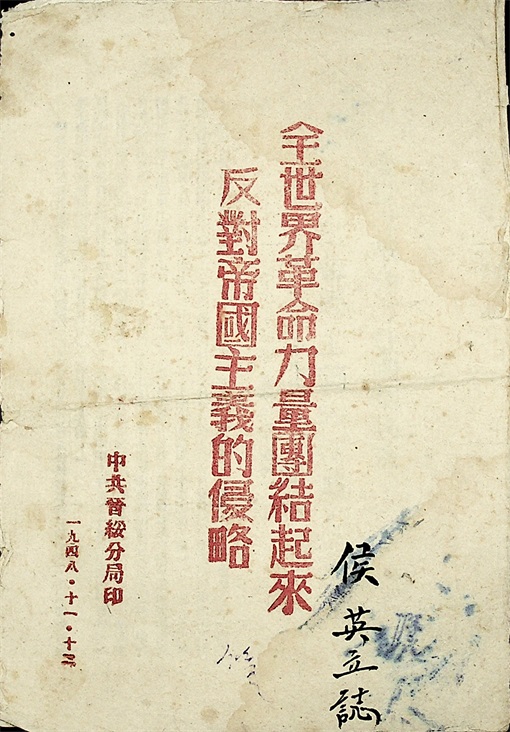 全世界革命力量團結起來
反對帝國主義的侵略
中共晉綏分局印
一九四八·十一·十
侯英立誌